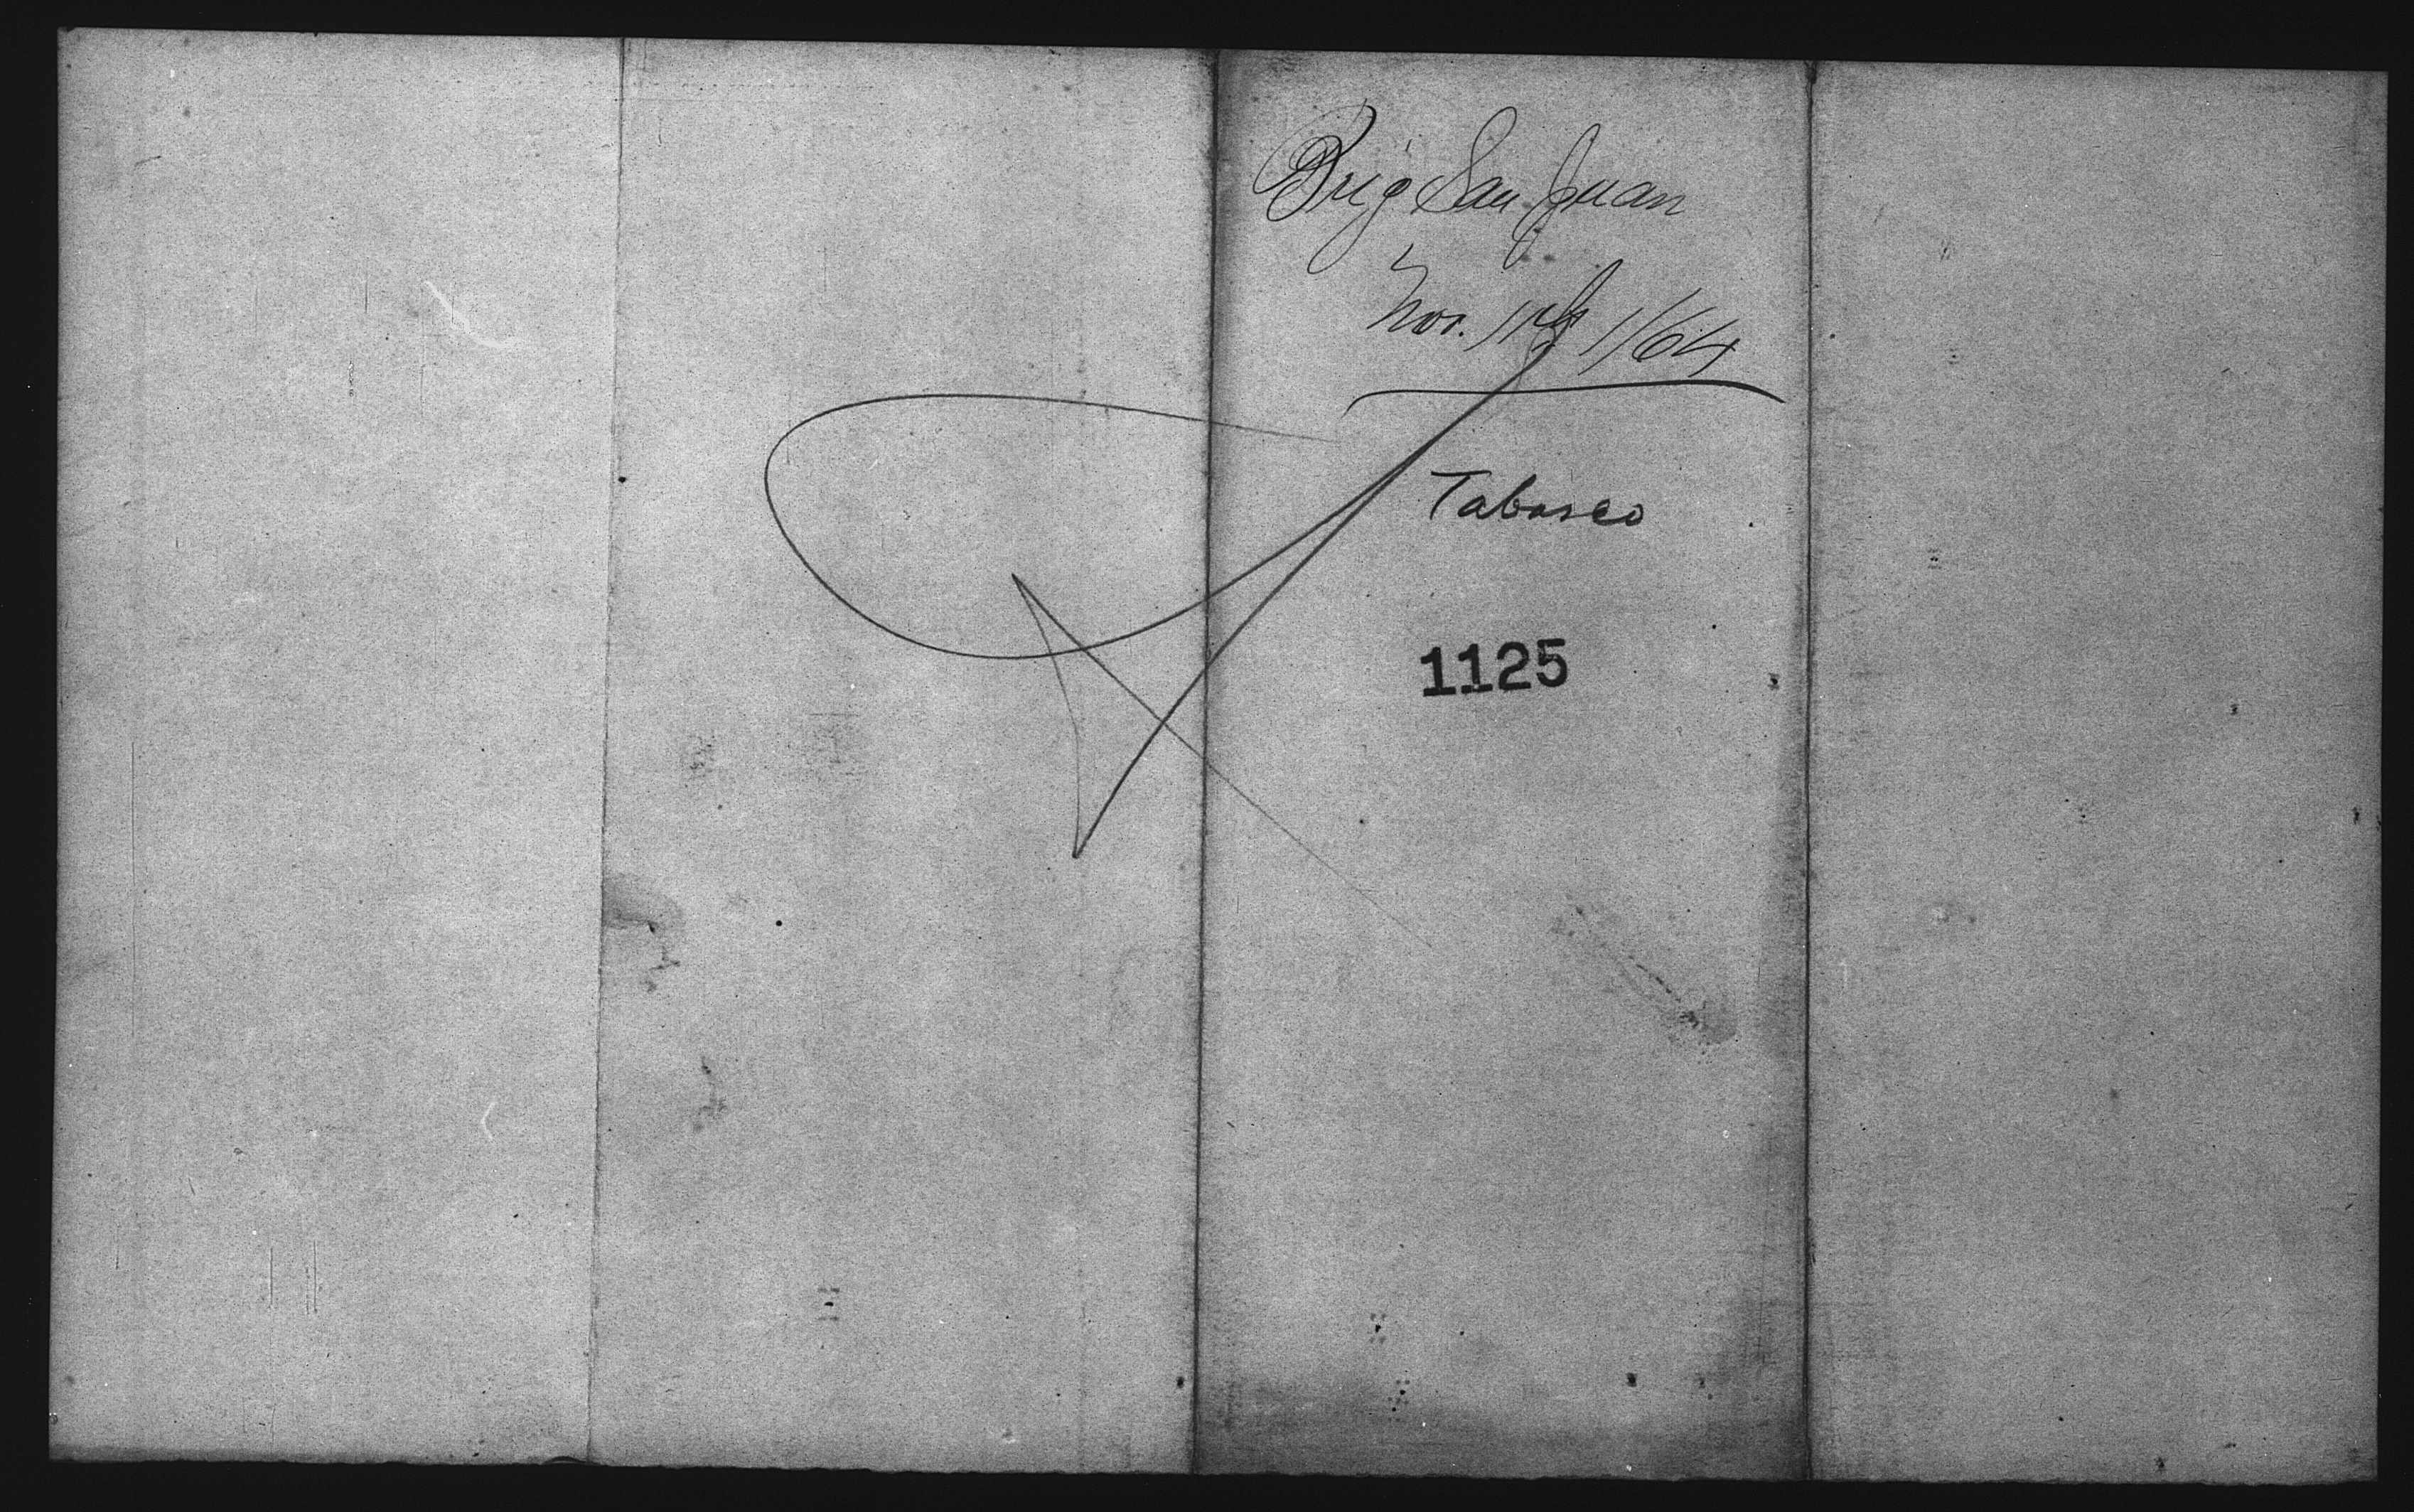 Brig San Juan
Nov. 11th 1/64
Tabasco
1125